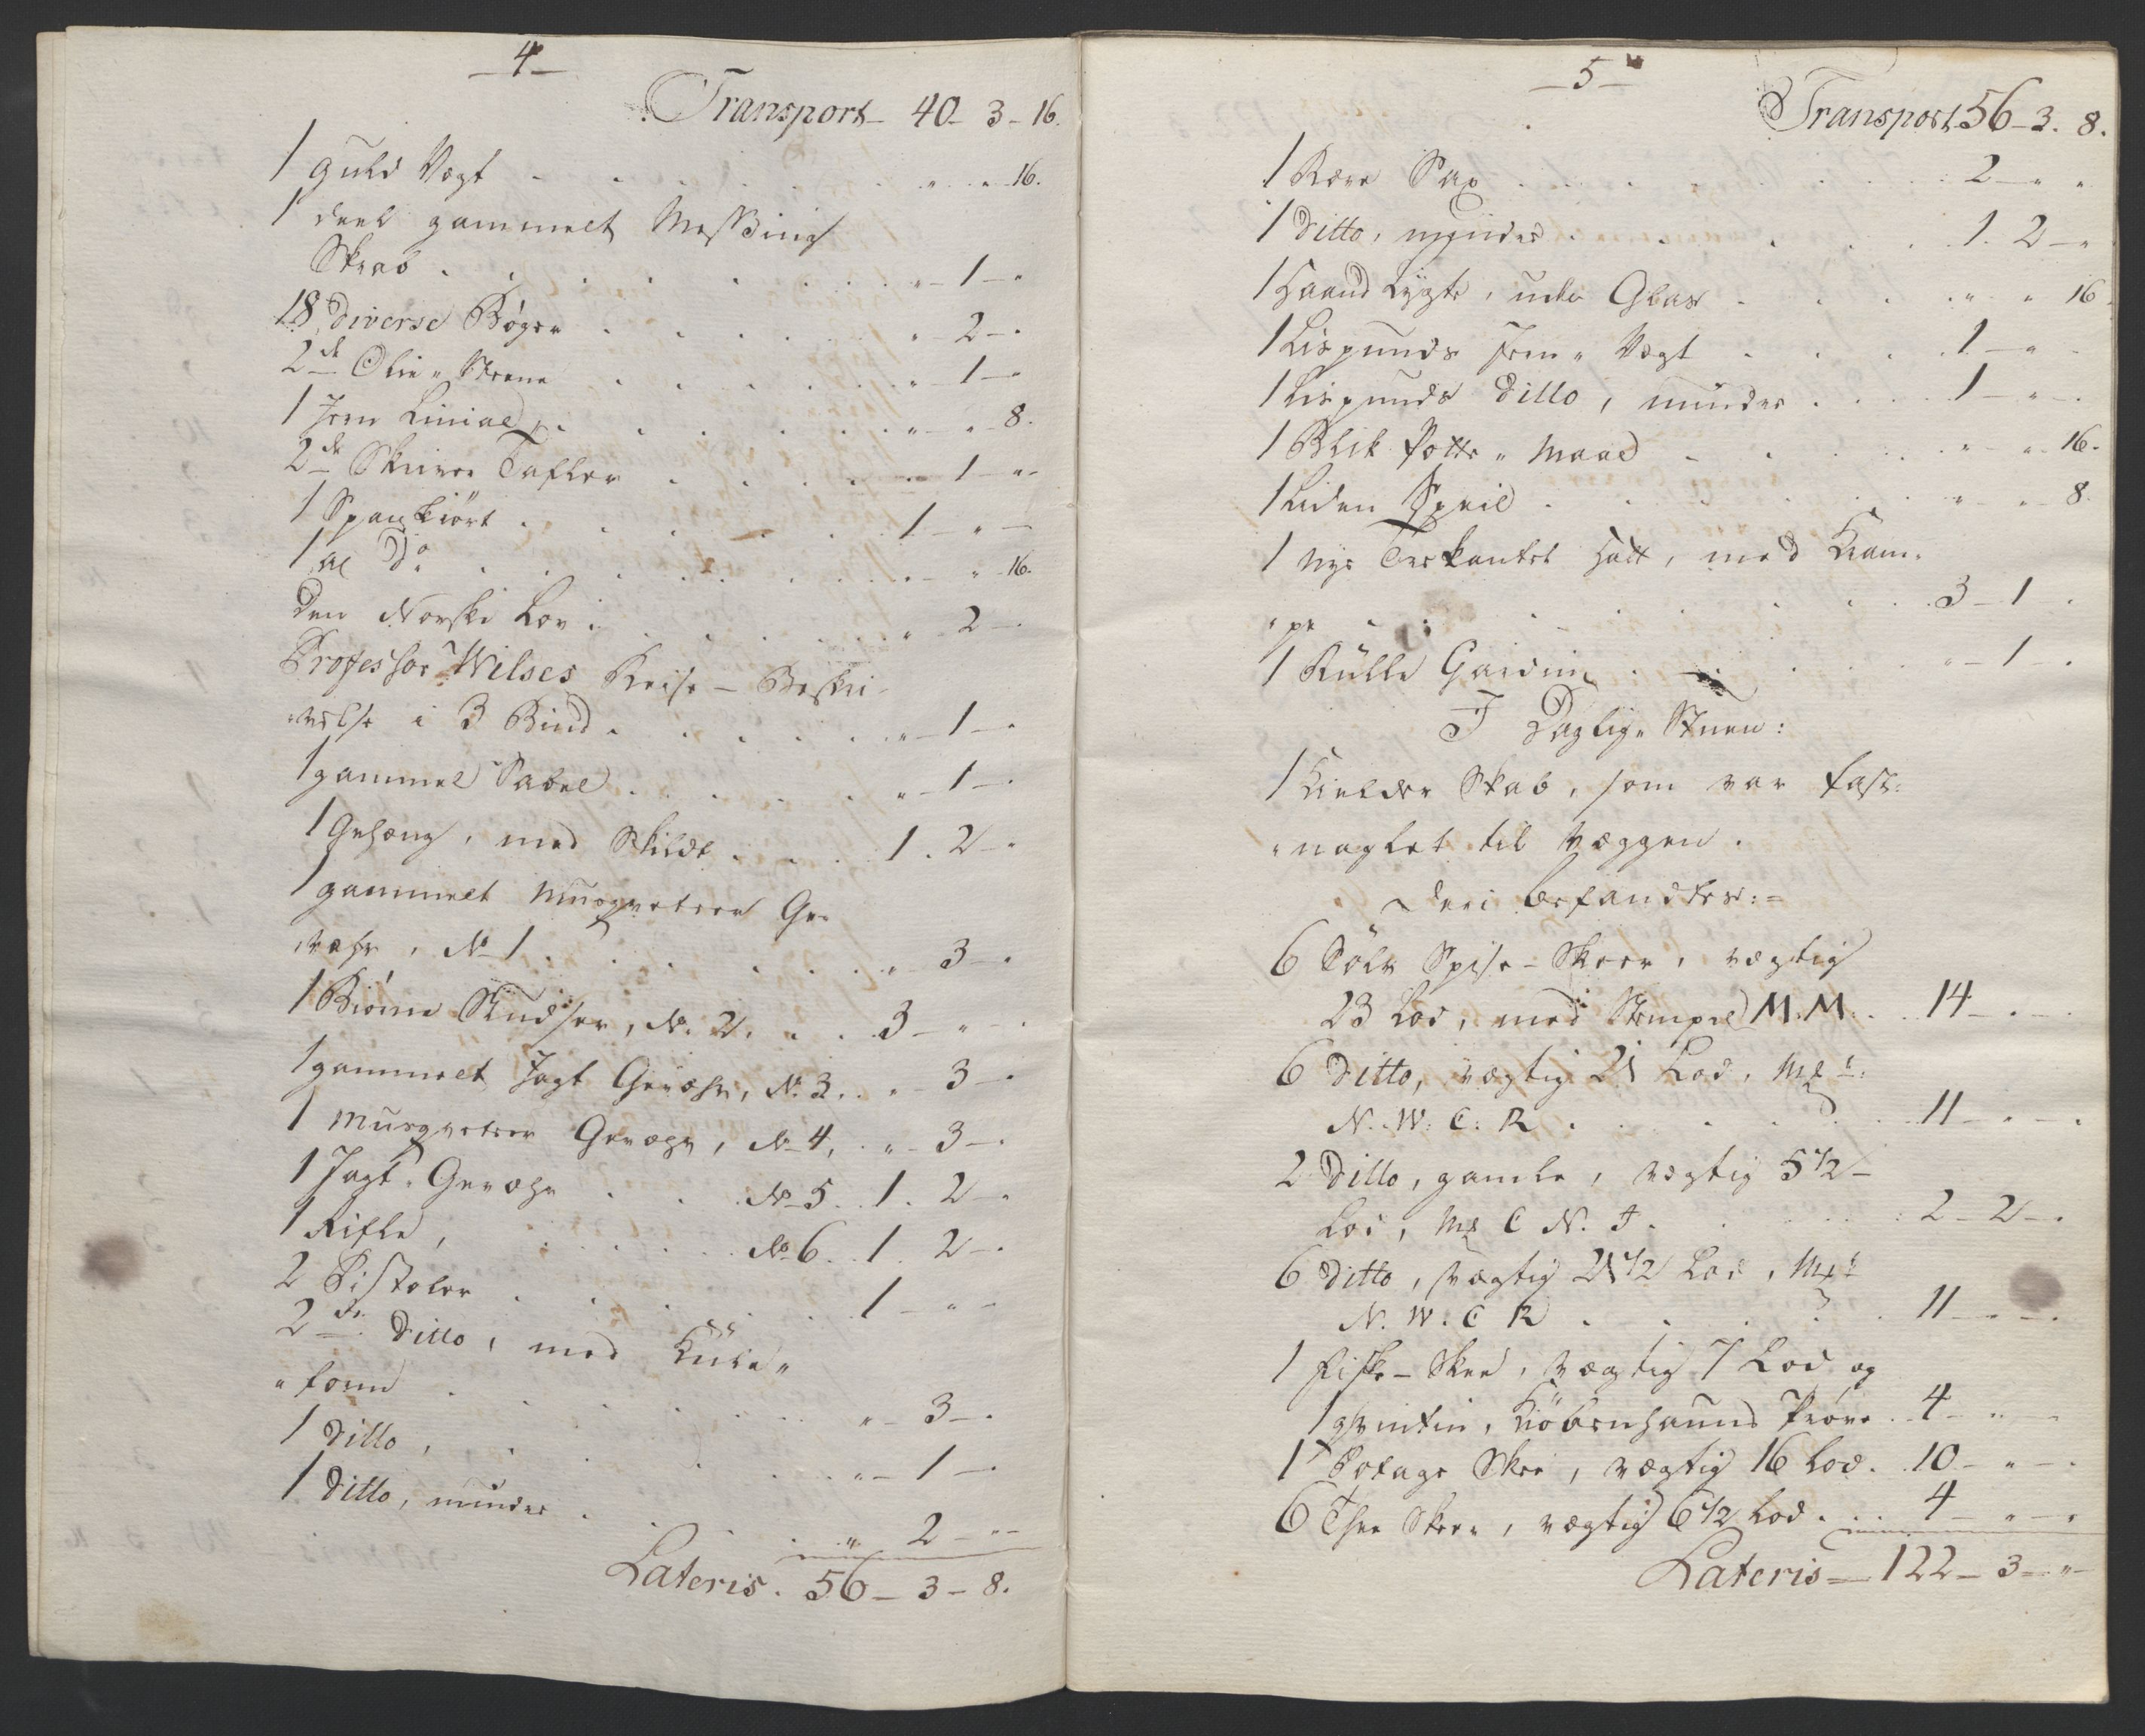 - 4 -
Transport - 40 - 3 - 16.
1 Guld Vegt . . . . . . „ - „ - 16.
1 deel gammelt Messing
Skrab . . . . . . . „ - 1 - „
18 diverse Bøger . . . . . „ - 2 - .
2de Olie „ Steene . . . . . . „ - 1 - „
1 Jern Linial . . . . . . „ - „ - 8.
2de Skriver Tafler . . . . . 1 - „ -
1 Spanskrört . . . . . 1 - „ -
1 al Do . . . . . . . „ - „ - 16.
Den Norske Lov . . . . . . „ - 2 - .
Professor Wilses Reise - Beskri-
„velse i 3 Bind . . . . . . „ - 1 - „
1 gammel Sabel . . . . . . „ - 1 - .
1 Gehæng, med Skildt . . . 1 . 2 - „
1 gammelt Musqveteer Ge„
„vehr, No 1 . . . . . . „ - 3 - .
1 Biörne Studser, No. 2. . . . 3 - „ - .
1 gammelt Jagt Gevæhr, No. 3. . „ - 3 - .
1 Musqveteer Gevæhr, No 4, . . „ - 3 - .
1 Jagt. Gevæhr . . . No 5 . . 1 . 2 - .
1 Rifle, . . . . . . No 6 . . 1 . 2 - .
2 Pistoler . . . . . . 1 - „ -
2de Ditto, med Kule„
„form . . . . . . . „ - 3 - .
1 Ditto, . . . . . . . „ - 1 - .
1 Ditto, mindre . . . . „ 2 - „ -
Lateris . 56 - 3 - 8.
- 5 -
Transport 56 - 3. 8.
1 Ræve Sax . . . . . . . . 2 - „ „
1 Ditto, mindre . . . . . 1. 2 - „
1 Haand Lygte, uden Glas . . . . „ „ 16
1 Lispunds Jern „ Vegt . . . . 1 - „ -
1 Lispunds Ditto, mindre . . . . 1 - „ - .
1 Blik Potte „ Maal - . . . . „ - „ - 16.
1 Liden Speil . . . . . . „ - „ - 8.
1 nye Trekantet Hatt, med Kram„
„pe . . . . . . . . . 3 - 1 .
1 Rulle Gardin . . . . „ - 1 - .
I Daglig„ Stuen:
1 Kielder Skab, som var fast„
„naglet til Væggen.
Deri befandtes:=
6 Sölv Spise - Skeer, vægtig
23 Lod, med Stempel M. M. . . 14 - . - .
6 Ditto, vægtig 21 Lod, Mkt:
N. W: C: R . . . . . . 11 - „ - .
2 Ditto, gamle, vægtig 5 1/2 -
Lod, Mk C N. J. . . . . . 2 - 2 - .
6 Ditto, vægtig 21 1/2 Lod, Mkt
N. W. C R . . . . . 11 - „ - .
1 Fiske - Skee, vægtig 7 Lod og
1 qvintin, Kiöbenhauns Pröve . 4 - „ -
1 Potage Skee, vægtig 16 Lod . 10 - „ - .
6 Thee Skeer, vægtig 6 1/2 Lod . . . 4 - „ - „
Lateris = 122 - 3 - „ -